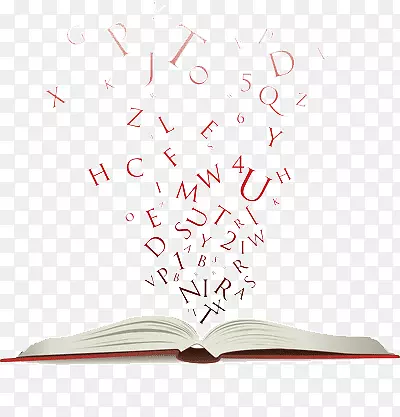 G P T T
J O D
X K K 5 Q Z
Z L E 6 Y
H C F 4 H
I M W U K
O E S U T R I
D Y 2 I W
V P 1 B B R
N I R A S
T X